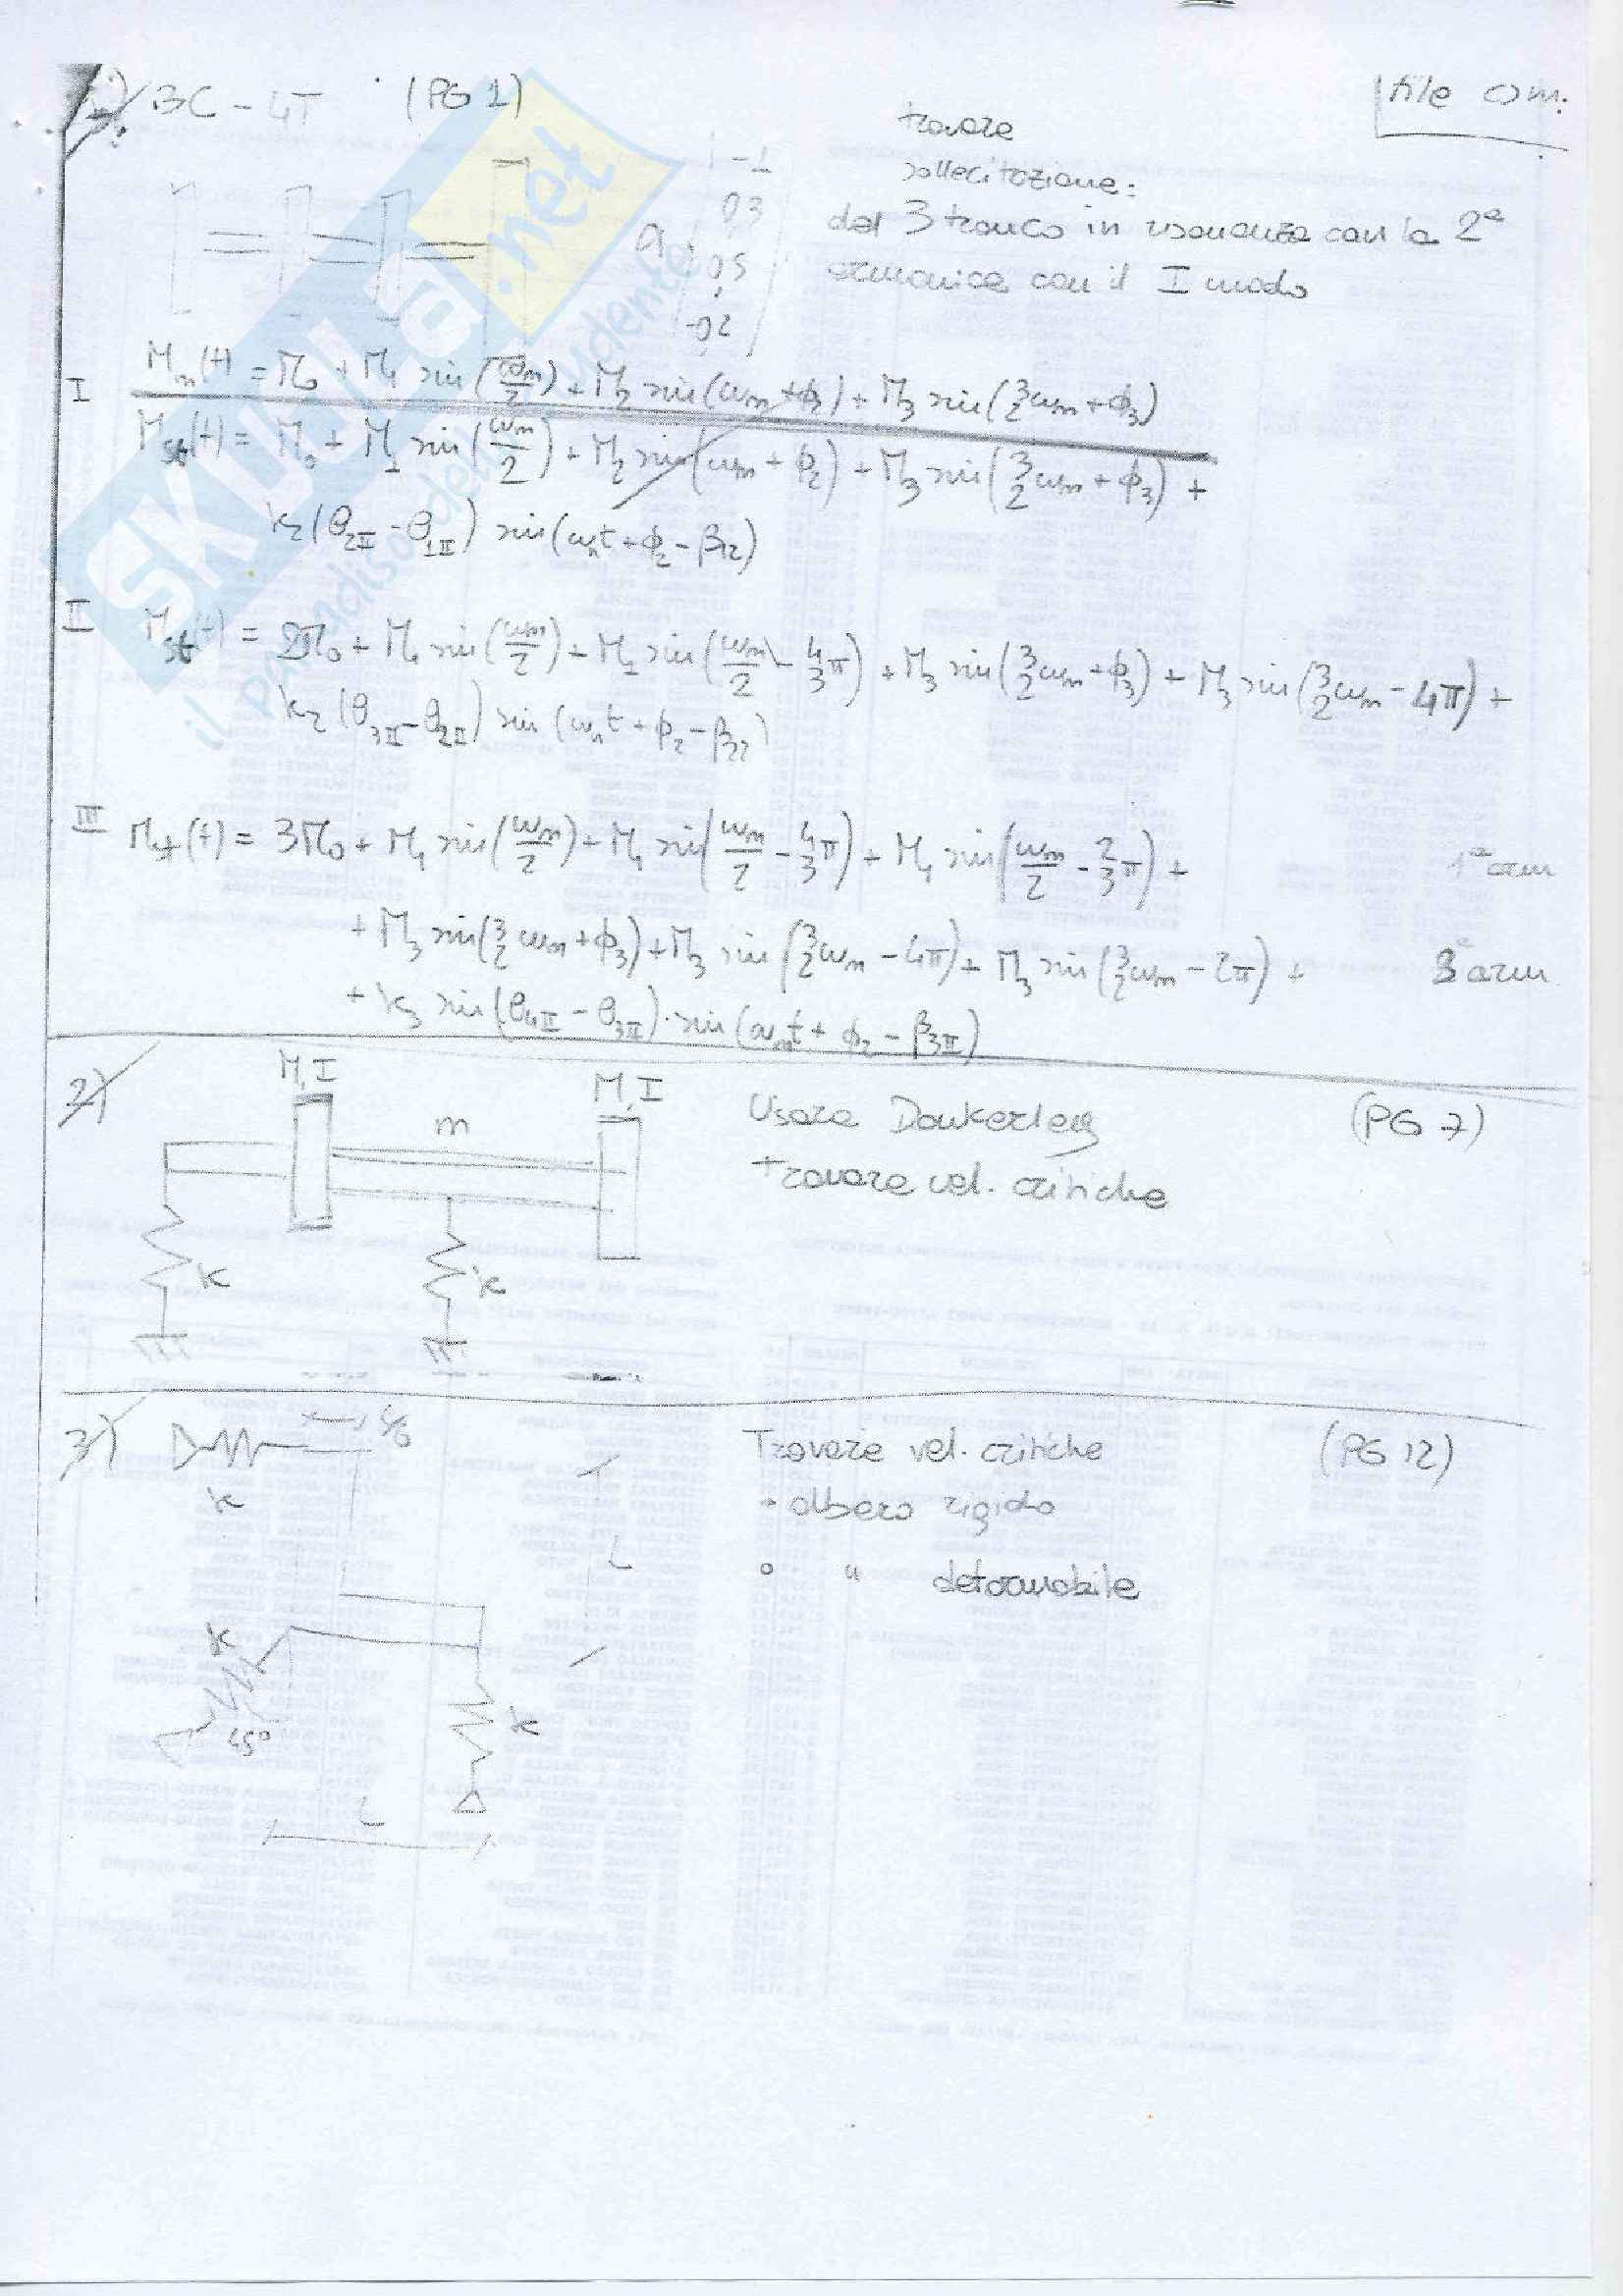 3C - 4T (PG 1)
file om.
trovare
sollecitazione:
del 3 tronco in risonanza con la 2ª
armonica con il I modo
-1
03
05
-02
I M_m(t) = M_0 + M_1 sin(ω_m/2) + M_2 sin(ω_m + φ_2) + M_3 sin(3/2 ω_m + φ_3)
M_st(t) = M_0 + M_1 sin(ω_m/2) + M_2 sin(ω_m + φ_2) + M_3 sin(3/2 ω_m + φ_3) +
k_2 (θ_2II - θ_1II) sin(ω_n t + φ_2 - β_12)
II M_st(t) = 2M_0 + M_1 sin(ω_m/2) + M_1 sin(ω_m/2 - 4/3 π) + M_3 sin(3/2 ω_m + φ_3) + M_3 sin(3/2 ω_m - 4π) +
k_2 (θ_3II - θ_2II) sin(ω_n t + φ_2 - β_22)
III M_st(t) = 3M_0 + M_1 sin(ω_m/2) + M_1 sin(ω_m/2 - 4/3 π) + M_1 sin(ω_m/2 - 2/3 π) + 1ª arm
+ M_3 sin(3/2 ω_m + φ_3) + M_3 sin(3/2 ω_m - 4π) + M_3 sin(3/2 ω_m - 2π) + 3ª arm
+ k_3 sin(θ_4II - θ_3II) · sin(ω_n t + φ_2 - β_3II)
2) M, I m M, I
Usare Dunkerley (PG 7)
trovare vel. critiche
k k
3) L/3
k
Trovare vel. critiche (PG 12)
• albero rigido
L
• " deformabile
k
45°
k
L
SKUOLA.net
il paradiso dello studente